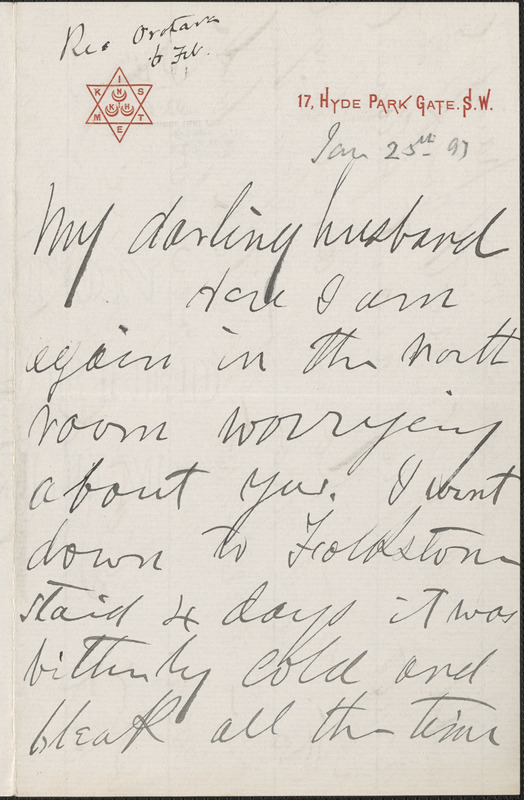 Rec Orotava
6 Feb.
I
K N S
K H
M T
E
17, HYDE PARK GATE. S.W.
Jan 25th 97
My darling husband
Here I am
again in the north
room worrying
about you. I went
down to Folkstone
staid 4 days it was
bitterly cold and
bleak all the time